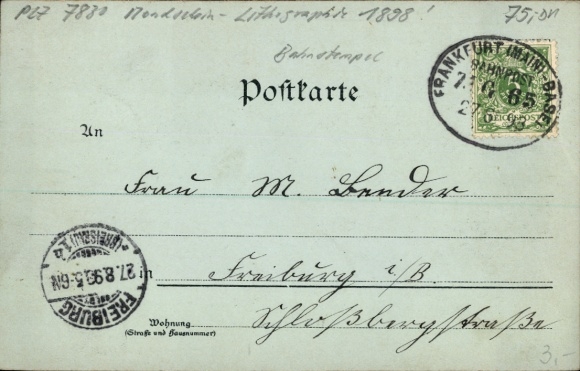 PLZ 7830 Mondschein - Lithographie 1898! 75,- DM
Bahnstempel
FRANKFURT (MAIN)-BASEL
BAHNPOST
65
REICHSPOST
Postkarte
An
Frau M. Bender
in Freiburg i/B.
Schloßbergstraße
Wohnung
(Straße und Hausnummer)
FREIBURG
(BREISGAU) 14
27.8.98.5-6N
3,-